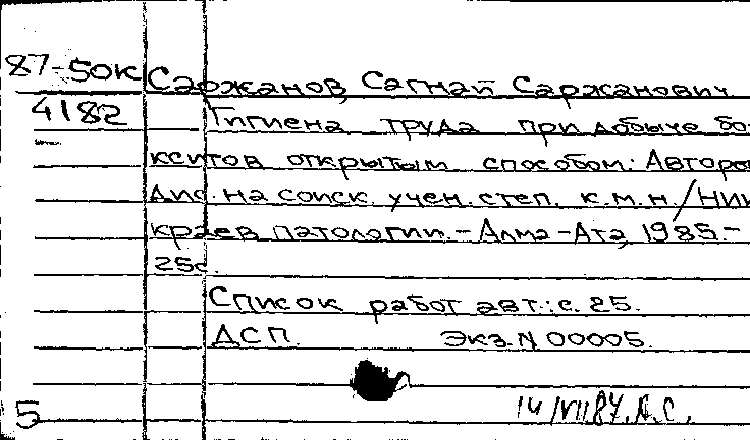 87-50к Саржанов, Сагнай Саржанович
4182 Гигиена труда при добыче бо
кситов открытым способом: Авторе
дис. на соиск. учен. степ. к.м.н./НИИ
краев. патологии. - Алма-Ата, 1985. -
25с.
Список работ авт.: с. 25.
ДСП. Экз. N 00005.
14/VII87. А.С.
5